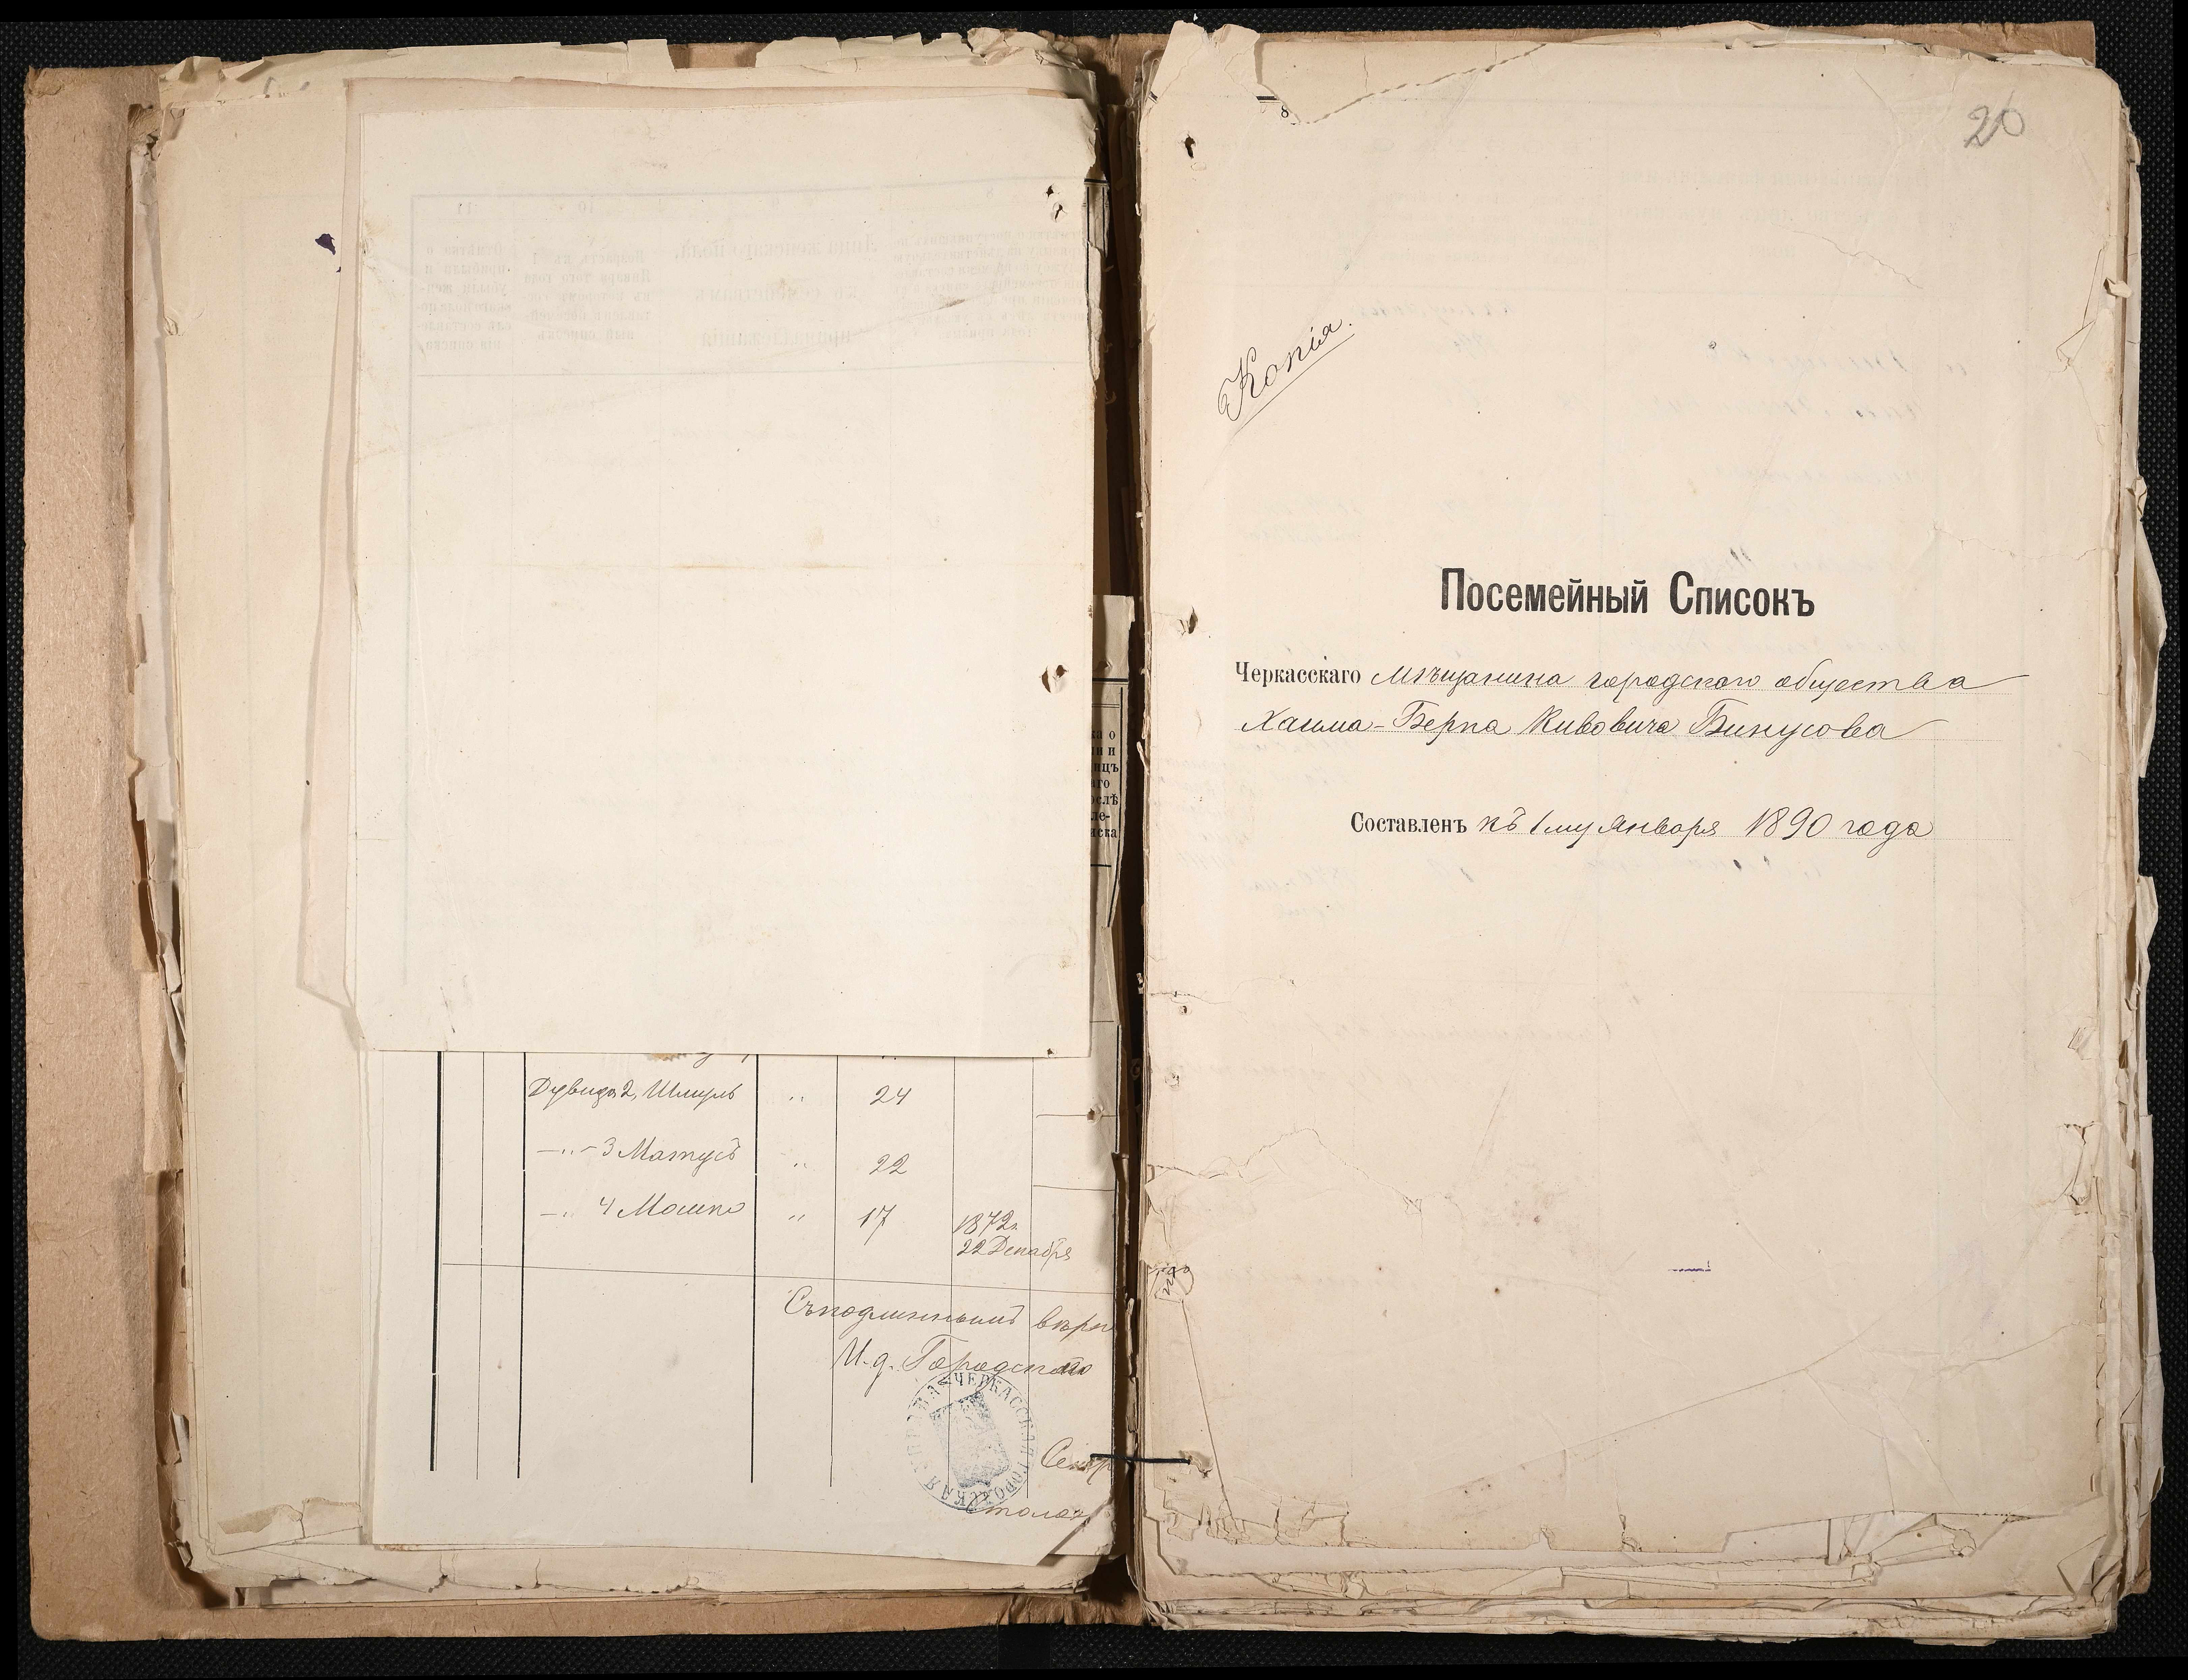 Дувида 2, Шмуль " 24
—"— 3 Матусъ " 22
—" 4 Мошко " 17 1872 г.
22 Декабря
Съ подлиннымъ вѣрн
И. д. Городского
ЧЕРКАССКАЯ ГОРОДСКАЯ УПРАВА
Секр
Столон
ка о
ли и
ицъ
аго
ослѣ
ле-
иска
20
Копія.
Посемейный Списокъ
Черкасскаго мѣщанина городского общества
Хаима-Берка Кивовича Бинусова
Составленъ къ 1му Января 1890 года